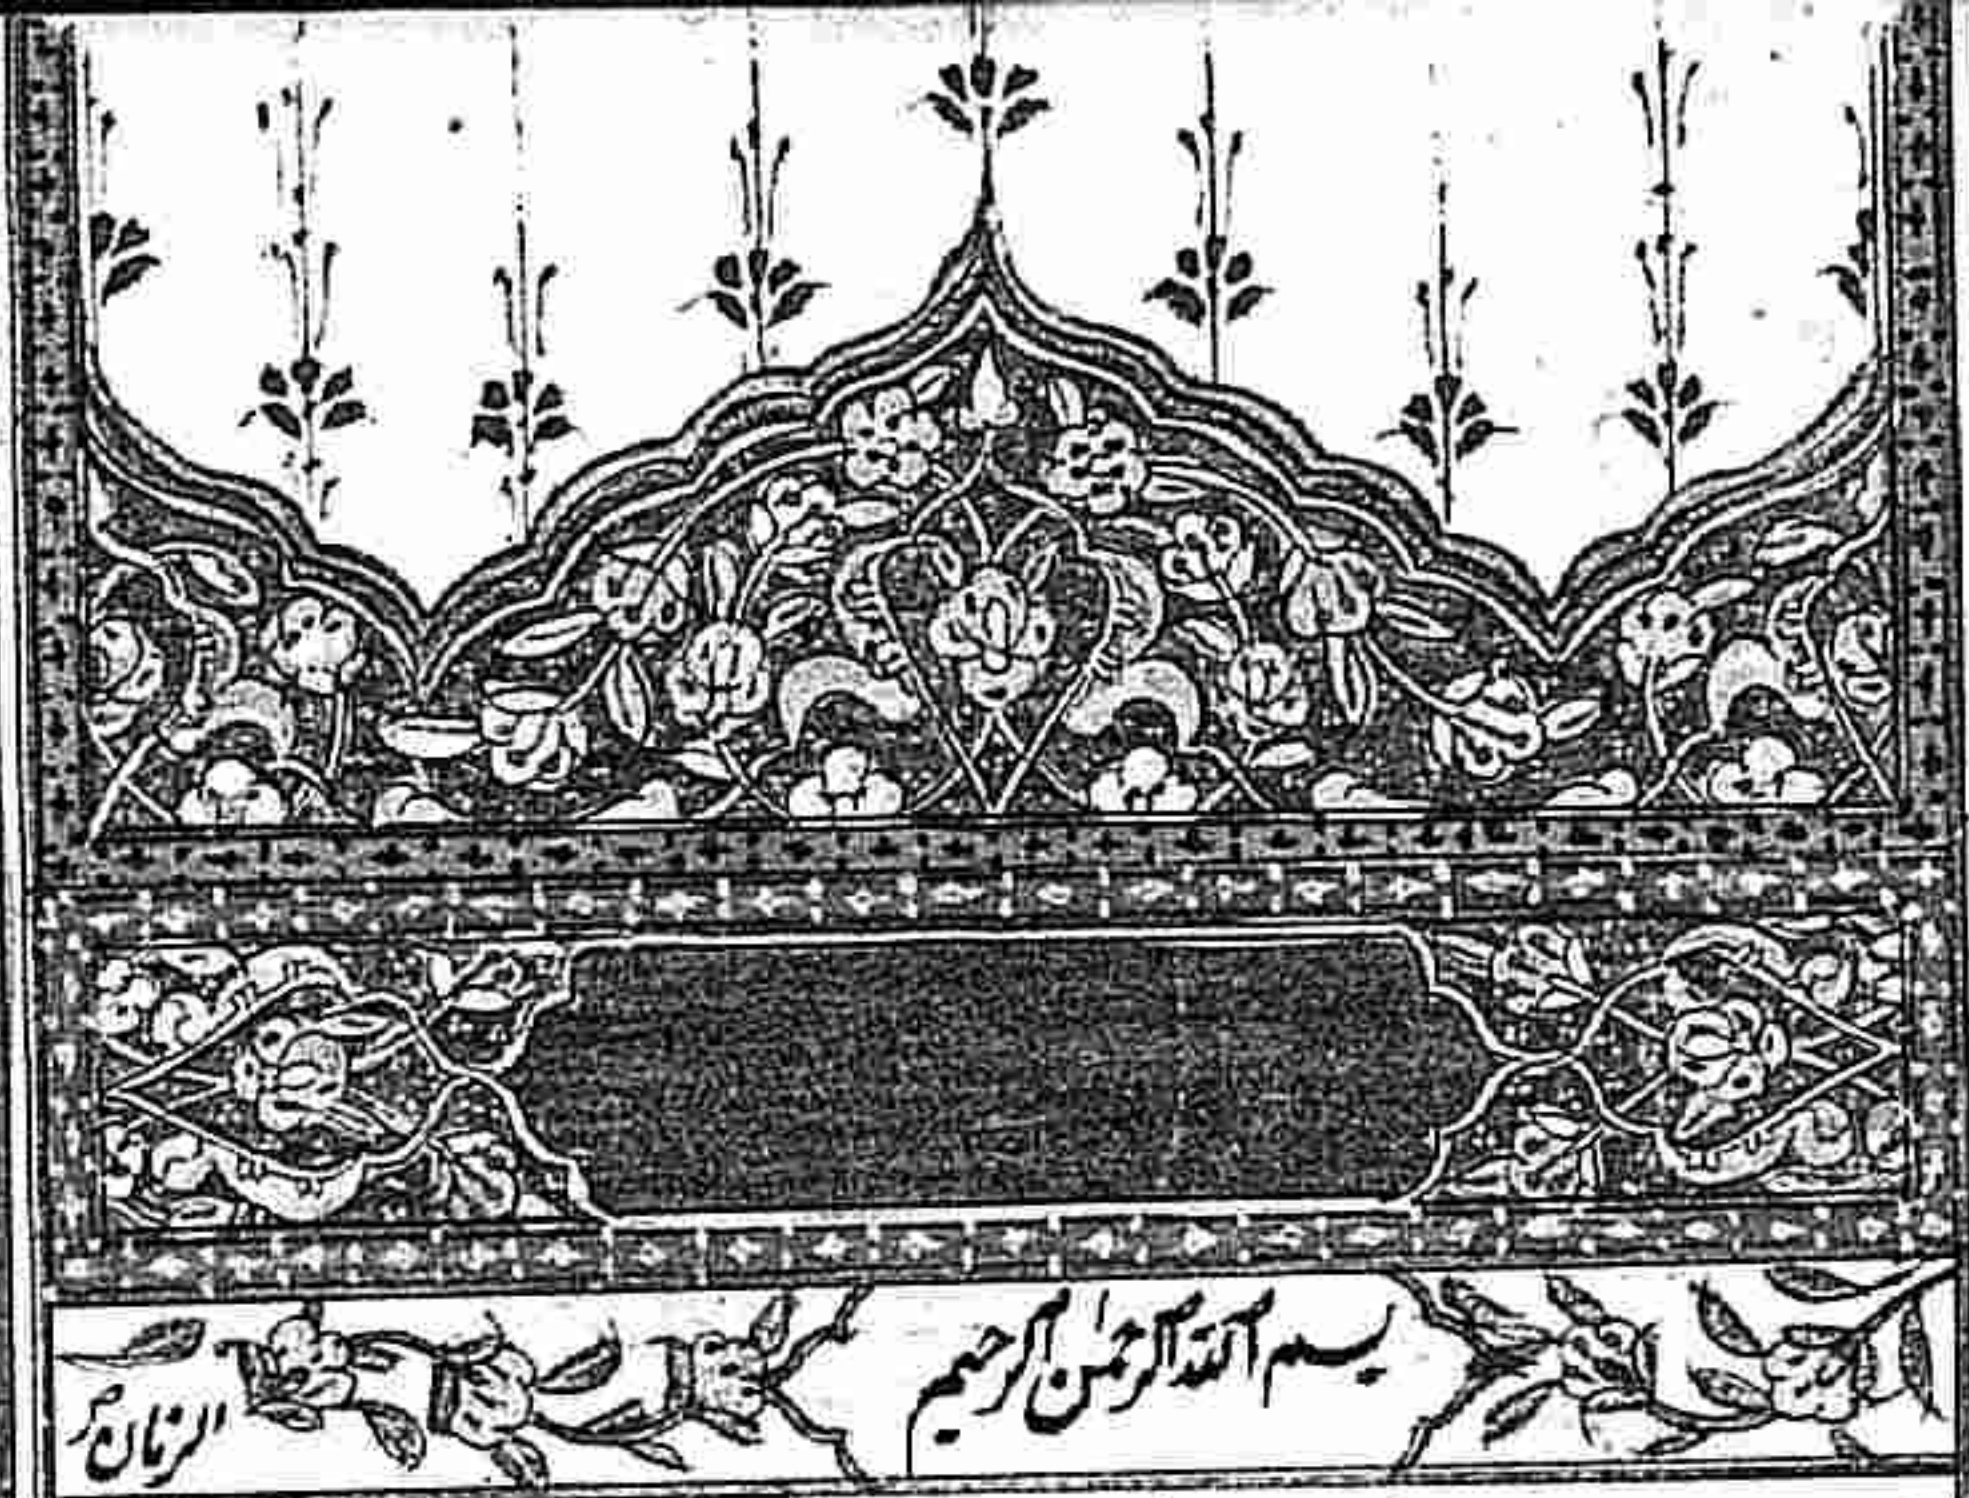 بسم الله الرحمن الرحيم
الزمان